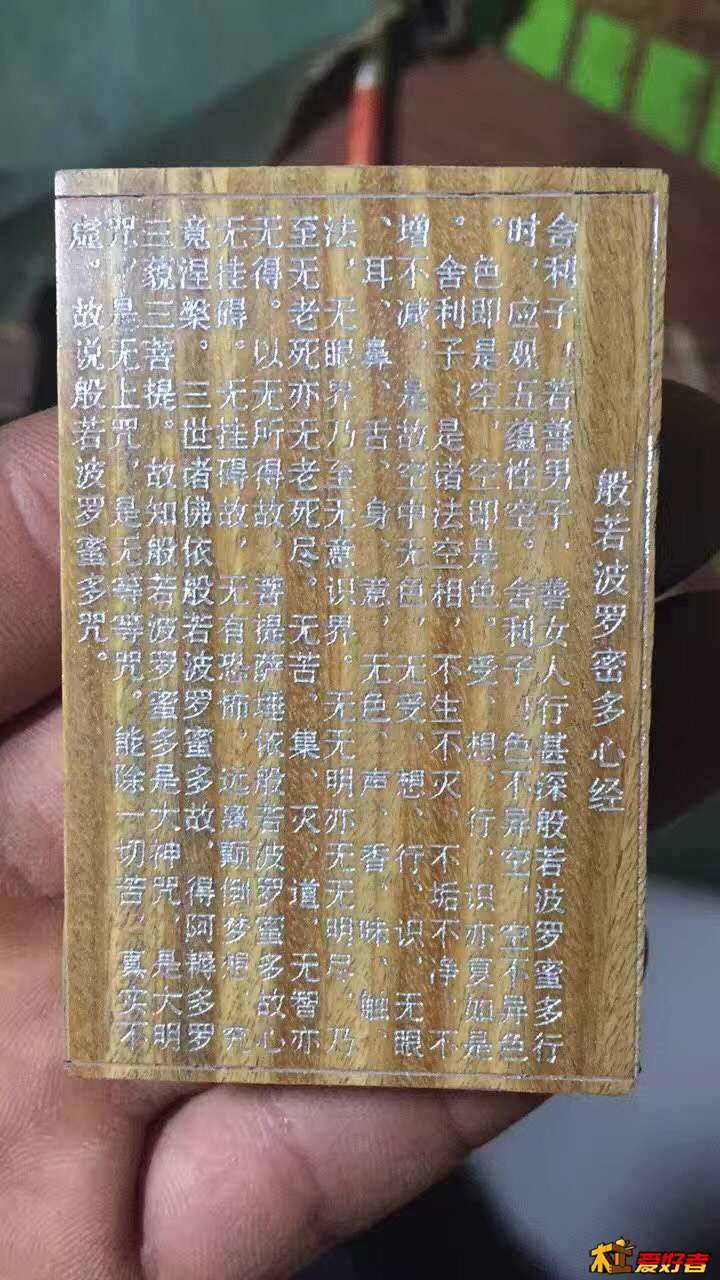 般若波罗密多心经
舍利子！若善男子、善女人行甚深般若波罗蜜多行
时，应观五蕴性空。舍利子！色不异空，空不异色
。色即是空，空即是色。受、想、行、识亦复如是
。舍利子！是诸法空相，不生不灭、不垢不净、不
增不减，是故空中无色，无受、想、行、识、无眼
、耳、鼻、舌、身、意，无色、声、香、味、触、
法，无眼界乃至无意识界。无无明亦无无明尽，乃
至无老死亦无老死尽。无苦、集、灭、道，无智亦
无得。以无所得故，菩提萨埵依般若波罗蜜多故心
无挂碍。无挂碍故，无有恐怖，远离颠倒梦想，究
竟涅槃。三世诸佛依般若波罗蜜多故，得阿耨多罗
三藐三菩提。故知般若波罗蜜多是大神咒，是大明
咒，是无上咒，是无等等咒。能除一切苦，真实不
虚。故说般若波罗蜜多咒。
木工爱好者